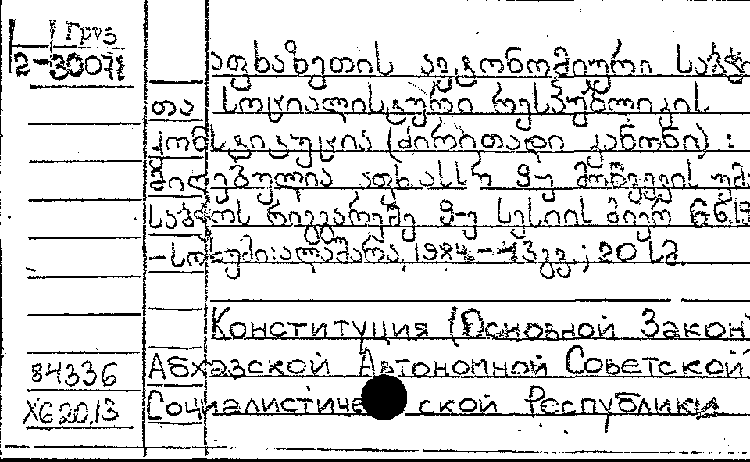 Груз
2-30071
აფხაზეთის ავტონომიური საბჭო
თა სოციალისტური რესპუბლიკის
კონსტიტუცია (ძირითადი კანონი) :
მიღებულია აფხ.ასსრ 9-ე მოწვევის უმ
საბჭოს რიგგარეშე 9-ე სესიის მიერ
-სოხუმი: ალაშარა, 1984.-43გვ.; 20 სმ.
Конституция (Основной Закон)
84336 Абхазской Автономной Советской
X620.13 Социалистической Республики